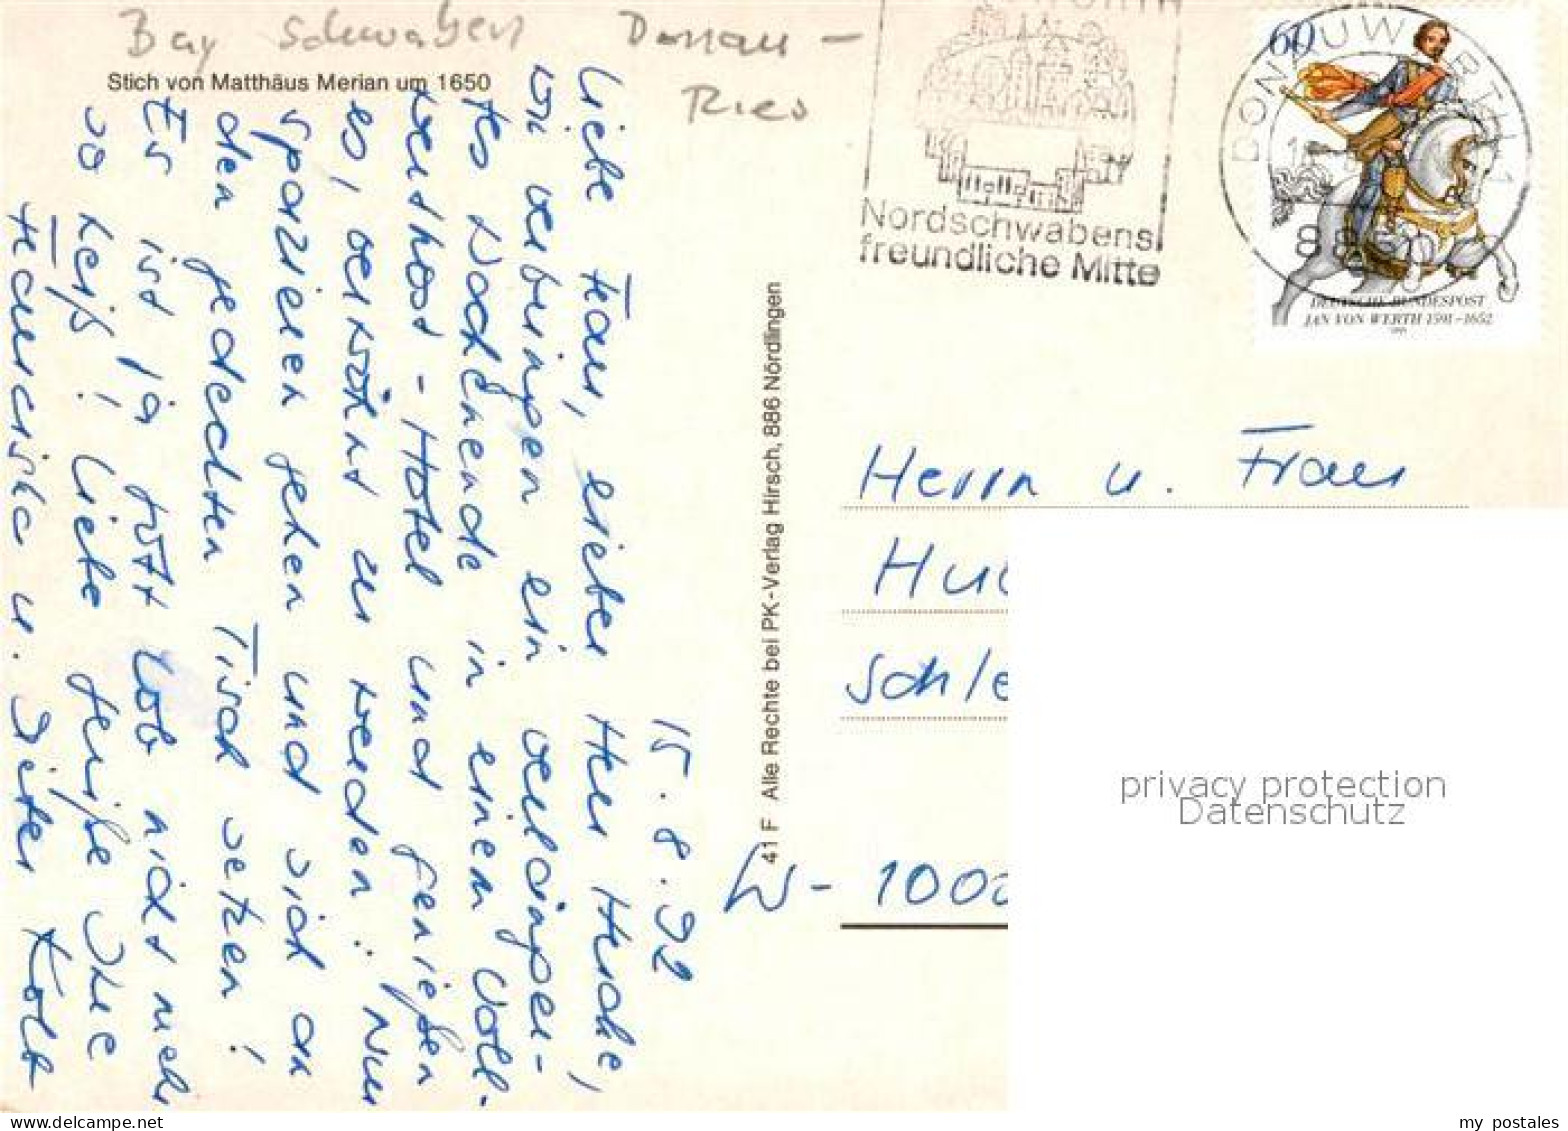 Bay Schwaben Donau -
Ries
Stich von Matthäus Merian um 1650
15.8.92
Liebe Frau, lieber Herr
wir verbringen ein verlänger-
tes Wochenende in einem Voll-
wertkost - Hotel und genießen
es, verwöhnt zu werden. Nur
spazieren gehen und sich an
den gedeckten Tisch setzen!
Es ist ja Gott Lob nicht mehr
so heiß! Liebe Grüße Ihre
u. Dieter
41 F Alle Rechte bei PK-Verlag Hirsch, 886 Nördlingen
Nordschwabens
freundliche Mitte
DONAUWÖRTH 1
8850
60
DEUTSCHE BUNDESPOST
JAN VON WERTH 1591-1652
Herrn u. Frau
Hu
Schle
W- 1000
privacy protection
Datenschutz
my postales